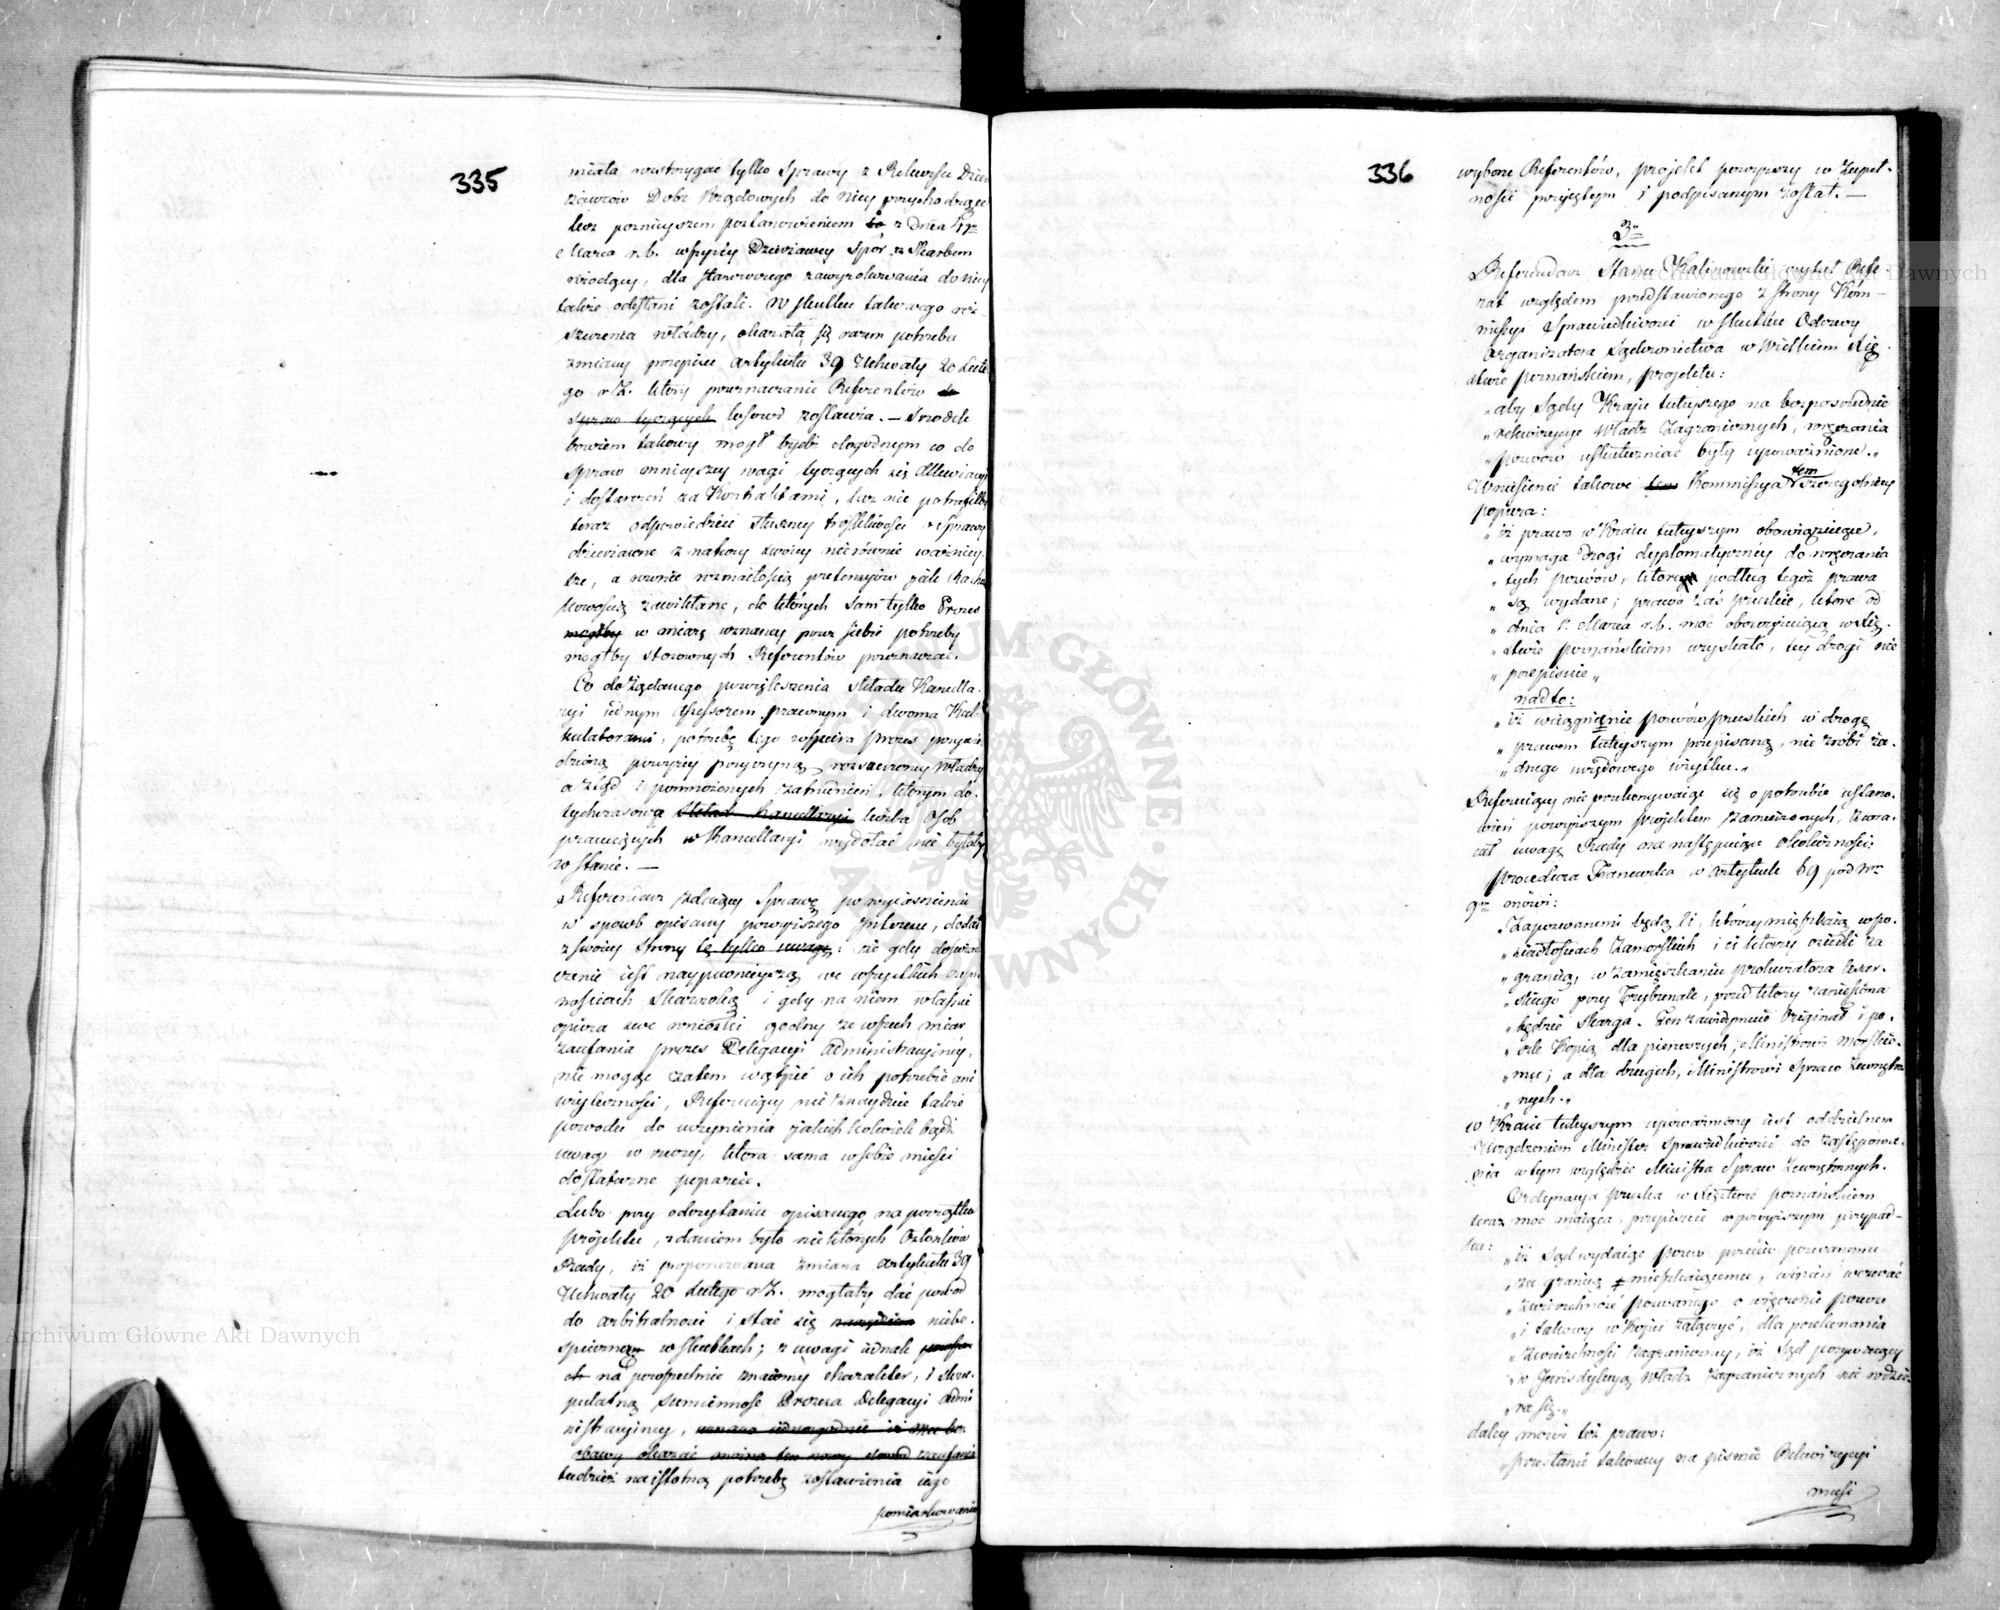 335
miała rozstrzygać tylko Sprawy z Rekursu Dzier
żawców Dobr Rządowych do Niey przychodzące
lecz poznieyszem postanowieniem z dnia 17go
Marca r.b. wszyscy Dzierżawcy Spór z Skarbem
wiodący, dla stanowczego zawyrokowania do Niey
także odesłani zostali. W skutku takowego roz-
szerzenia władzy, okazała się razem potrzeba
zmiany przepisu artykułu 39 Uchwały 20 Lute
go r.z. który poznaczanie Referentów do
spraw tyczących losowi zostawia. — Srodek
bowiem takowy mogł bydź dogodnym co do
Spraw mnieyszey wagi tyczących się Allewiacyi
i dostarczeń za Kontraktami, lecz nie potrafiłby
teraz odpowiedzieć słuszney troskliwości w Sprawy
dzierżawne z natury swoiey nierównie ważniey-
sze, a równie rozmaitością pretensyów iako Racha
kowością zawikłane, do których sam tylko Prezes
mogłby w miarę uznaney przez siebie potrzeby
mogłby stosownych Referentów przeznaczać.
Co do żądanego powiększenia składu Kancella-
ryi iednym Assessorem prawnym i dwoma Kal-
kulatorami, potrzebę tego wspiera Prezes powie
dzioną powyżey przyczyną rozszerzoney władzy
a ztąd i pomnożonych zatrudnień, którym do-
tychczasowa skład Kancellaryi liczba Osób
pracuiących w Kancellaryi wydołać nie byłaby
w stanie. —
Referendarz zdaiący Sprawę po wyiaśnieniu
w sposób opisany powyższego Interesu, dodał
z swoiey strony tę tylko uwagę: że gdy doświad
czenie iest naypewnieyszą we wszystkich czyn
nościach skazówką i gdy na niem właśnie
opiera swe wnioski godny ze wszech miar
zaufania Prezes Delegacyi Administracyiney,
nie mogąc zatem wątpić o ich potrzebie ani
użyteczności, Referuiący nie znayduie także
powodu do uczynienia iakichkolwiek bądź
uwag w rzeczy, która sama w sobie mieści
dostateczne poparcie.
Lubo przy odczytaniu opisanego na początku
Projektu, zdaniem było niektórych Członków
Rady, iż proponowana zmiana artykułu 39
Uchwały 20 Lutego r.z. mogłaby dać powód
do arbitralności i stać się nieb-
spieczną w skutkach; z uwagi iednak
na powszechnie znaiomy charakter, i skru-
pulatną sumienność Prezesa Delegacyi Admi
nistracyiney,
obawy okazać można ten nowy dowód zaufania
tudzież na istotną potrzebę zostawienia iego
pomiarkowaniu
336
wyboru Referentów, projekt powyższy w zupeł-
ności przyiętym i podpisanym został. —
3o
Referendarz Stanu Kalinowski czytał Refe
rat względem przedstawionego z strony Kom-
missyi Sprawiedliwości w skutku Odezwy
Organizatora Sądownictwa w Wielkiem Xię
stwie poznańskiem, projektu:
„aby Sądy Kraiu tuteyszego na bezposrednie
„rekwizycye Władz Zagranicznych, wręczania
„pozwów uskuteczniać były upoważnione.„
Wniesienie takowe Kommissya tem szczegolniey
popiera:
„iż prawo w Kraiu tuteyszym obowiązuiące,
„wymaga drogi dyplomatyczney do wręczania
„tych pozwów, które podług tegoż prawa
„są wydane; prawo zaś pruskie, które od
„dnia 1. Marca r.b. moc obowiązuiącą w Xię-
„stwie poznańskiem uzyskało, tey drogi nie
„przepisuie„
nadto:
„iż wciągnienie pozwów pruskich w drogę
„prawem tuteyszym przepisaną, nie zrobi ża-
„dnego urzędowego użytku.„
Referuiący nie przekonywaiąc się o potrzebie ustano-
wień powyższym projektem zamierzonych, zwra-
cał uwagę Rady na następuiące okoliczności:
Procedura Francuzka w artykule 69 pod Nro
9tm mówi:
„Zapozwanemi będą ci, którzy mieszkaią w po-
„siadłościach Zamorskich i ci którzy osiedli za
„granicą, w zamieszkaniu prokuratora Cesar-
„skiego przy Trybunale, przed który zaniesiona
„będzie skarga. Ten zawidymuie Oryginał i po-
„szle kopią dla pierwszych, Ministrowi morskie-
„mu; a dla drugich, Ministrowi Spraw Zewnętrz
„nych.„
w Kraiu tuteyszym upoważniony iest oddzielnem
Urządzeniem Minister Sprawiedliwości do zastępowa-
nia w tym względzie Ministra Spraw Zewnętrznych.
Ordynacya pruska w Xięstwie poznańskiem
teraz moc maiąca, przepisuie w powyższym przypad-
ku:
„iż Sąd wydaiąc pozew przeciw pozwanemu
„za granicą mieszkaiącemu, winien wezwać
„Zwierzchność pozwanego o wręczenie pozwu
„i takowy w kopii załączyć, dla przekonania
„Zwierzchności zagraniczney, iż Sąd pozywaiący
„w Jurisdykcyą Władz Zagranicznych nie wdzie-
„ra się.„
daley mówi też prawo:
„przesłanie takowey na pismie Rekwizycyi
musi
Archiwum Główne Akt Dawnych